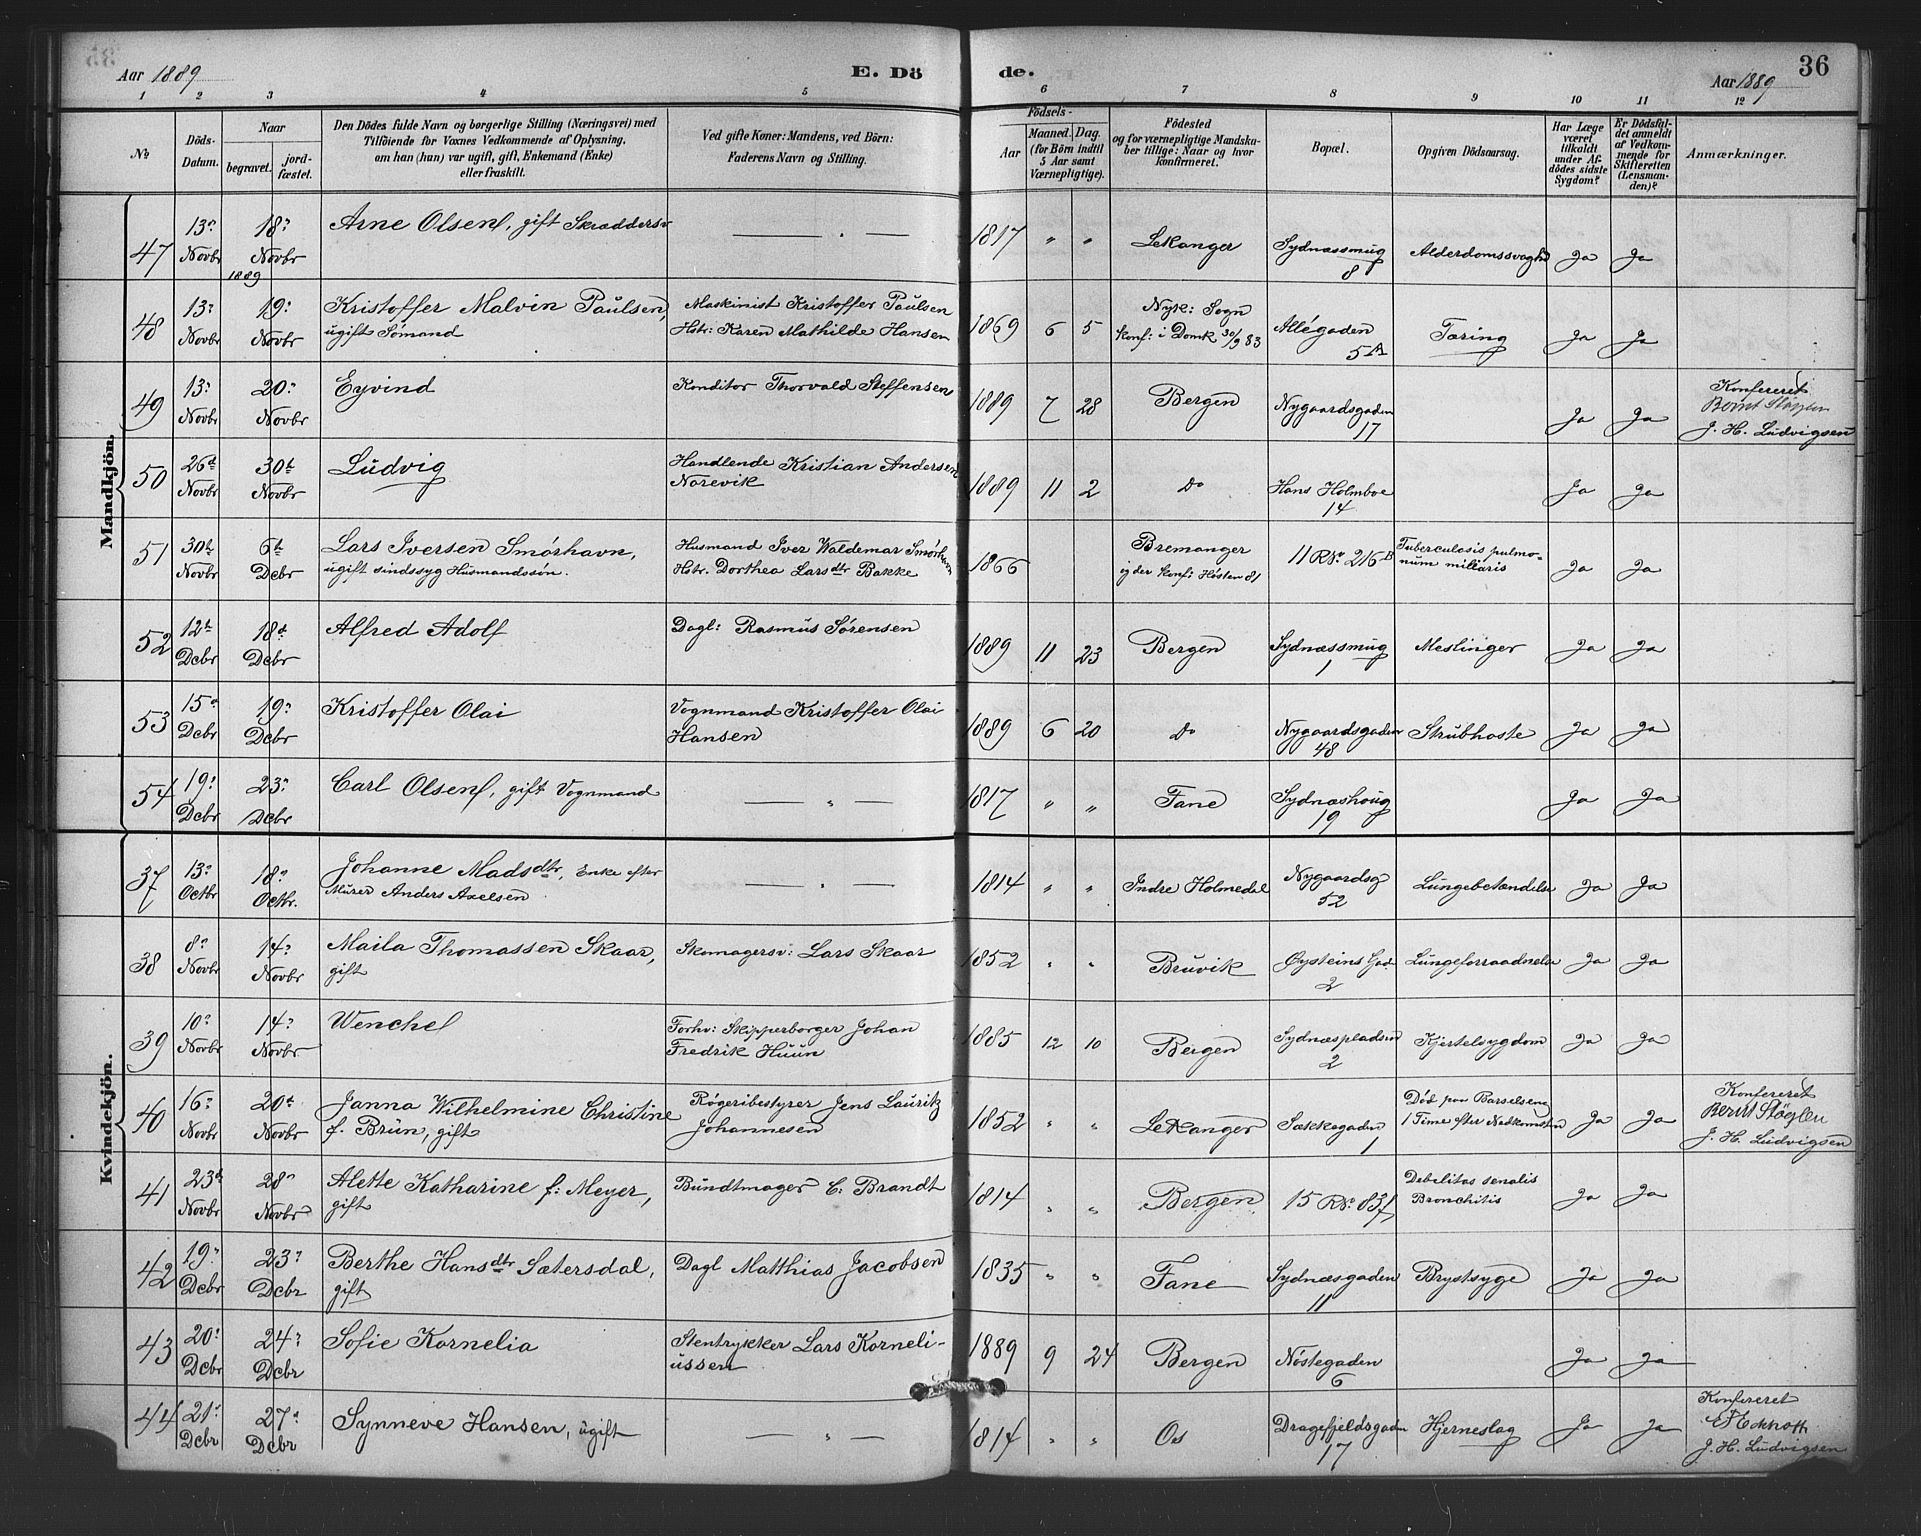 Aar 1889
E. Dö de.
Aar 1889
36
1 2 3 4 5 6 7 8 9 10 11 12
No
Döds-Datum.
Naar
begravet.
jord-fæstet.
Den Dödes fulde Navn og borgerlige Stilling (Næringsvei) med
Tilföiende for Voxnes Vedkommende af Oplysning,
om han (hun) var ugift, gift, Enkemand (Enke)
eller fraskilt.
Ved gifte Koner: Mandens, ved Börn:
Faderens Navn og Stilling.
Födsels-
Aar
Maaned. Dag.
(for Börn indtil
5 Aar samt
Værnepligtige).
Födested
og for værnepligtige Mandska-
ber tillige: Naar og hvor
konfirmeret.
Bopæl.
Opgiven Dödsaarsag.
Har Læge
været
tilkaldt
under Af-
dödes sidste
Sygdom?
Er Dödsfal-
det anmeldt
af Vedkom-
mende for
Skifteretten
(Lensman-
den)?
Anmærkninger.
Mandkjön.
47 13: Novbr 1889 18: Novbr Arne Olsen, gift Skræddersv — " — 1817 " " Lekanger Sydnæssmug 8 Alderdomssvaghed Ja Ja
48 13: Novbr 19: Novbr Kristoffer Malvin Paulsen, ugift Sømand Maskinist Kristoffer Paulsen Hstr: Karen Mathilde Hansen 1869 6 5 Nyk: Sogn Konf: i Domk 30/9 83 Allégaden 5A Tæring Ja Ja
49 13: Novbr 20: Novbr Eyvind Konditor Thorvald Steffensen 1889 7 28 Bergen Nygaardsgaden 17 Ja Ja Konfereret J. H. Ludvigsen
50 26de Novbr 30te Novbr Ludvig Handlende Kristian Andersen Norevik 1889 11 2 Do Hans Holmboe 14 Ja Ja
51 30te Novbr 6te Dcbr Lars Iversen Smørhavn, ugift sindssyg Husmandssøn. Husmand Iver Waldemar Smørhavn Hstr. Dorthea Larsdtr Bakke 1866 Bremanger og der Konf: Høsten 81 11 R No 216B Tuberculosis pulmo-num miliaris Ja Ja
52 12te Dcbr 18de Dcbr Alfred Adolf Dagl: Rasmus Sørensen 1889 11 23 Bergen Sydnæssmug 1 Meslinger Ja Ja
53 15: Dcbr 19: Dcbr Kristoffer Olai Vognmand Kristoffer Olai Hansen 1889 6 20 Do Nygaardsgaden 48 Strubhoste Ja Ja
54 19: Dcbr 23: Dcbr Carl Olsen, gift Vognmand — " — 1817 " " Fane Sydnæshoug 19 Ja Ja
Kvindekjön.
37 13: Octbr 18: Octbr. Johanne Madsdtr, Enke efter Murer Anders Axelsen — " — 1814 " " Indre Holmedal Nygaardsg 52 Lungebetændelse Ja Ja
38 8: Novbr 14: Novbr Maila Thomassen Skaar, gift Skomagersv: Lars Skaar 1852 " " Bruvik Øysteins Gad 2 Lungeforraadnelse Ja Ja
39 10: Novbr 14: Novbr Wenchel Forhv: Skipperborger Johan Fredrik Huun 1885 12 10 Bergen Sydnæspladsen 2 Kjertelsygdom Ja Ja
40 16: Novbr 20de Novbr Janna Wilhelmine Christine f. Brün, gift Røgeribestyrer Jens Lauritz Johannesen 1852 " " Lekanger Sækkegaden 1 Død paa Barselseng 1 Time efter Nedkomsten Ja Ja Konfereret Bernt Støylen J. H. Ludvigsen
41 23de Novbr 28: Novbr Alette Katharine f: Meyer, gift Bundtmager C: Brandt 1814 " " Bergen 15 R No 837 Debelitas senalis Bronchitis Ja Ja
42 19: Dcbr 23: Dcbr Berthe Hansdtr Sætersdal, gift Dagl Matthias Jacobsen 1835 " " Fane Sydnæsgaden 11 Brystsyge Ja Ja
43 20: Dcbr 24: Dcbr Sofie Kornelia Stentrykker Lars Korneli-ussen 1889 9 24 Bergen Nøstegaden 6 Ja Ja
44 21: Dcbr 27: Dcbr Synneve Hansen, ugift — " — 1814 " " Os Dragefjeldsgaden 17 Hjerneslag Ja Ja Konfereret J. H. Ludvigsen